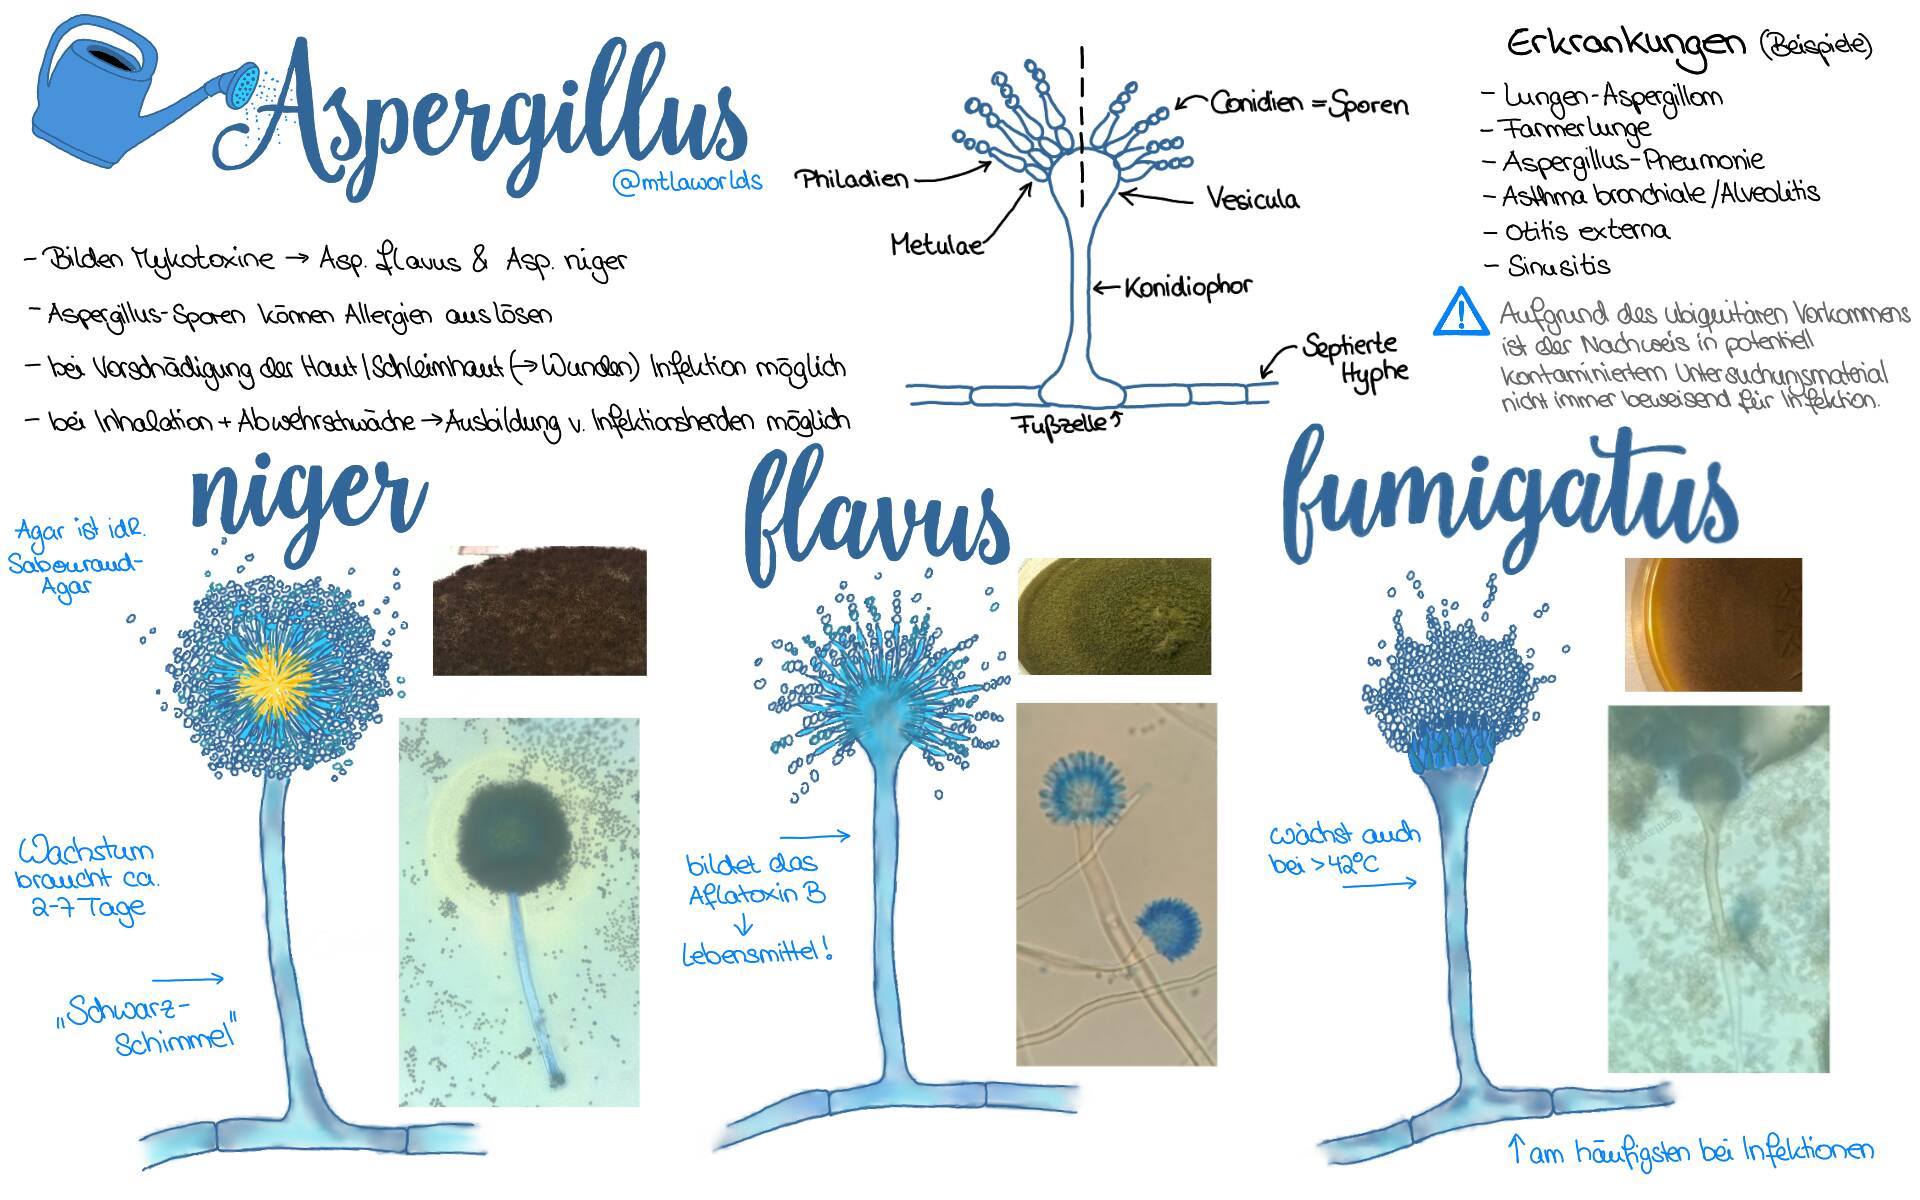 Aspergillus
@mtlaworlds
- Bilden Mykotoxine → Asp. flavus & Asp. niger
- Aspergillus-Sporen können Allergien auslösen
- bei Vorschädigung der Haut/Schleimhaut (→ Wunden) Infektion möglich
- bei Inhalation + Abwehrschwäche → Ausbildung v. Infektionsherden möglich
Conidien = Sporen
Philadien
Vesicula
Metulae
Konidiophor
Septierte
Hyphe
Fußzelle
Erkrankungen (Beispiele)
- Lungen-Aspergillom
- Farmerlunge
- Aspergillus-Pneumonie
- Asthma bronchiale/Alveolitis
- Otitis externa
- Sinusitis
! Aufgrund des ubiquitären Vorkommens
ist der Nachweis in potentiell
kontaminiertem Untersuchungsmaterial
nicht immer beweisend für Infektion.
niger
Agar ist idR.
Sabouraud-
Agar
Wachstum
braucht ca.
2-7 Tage
→
„Schwarz-
Schimmel"
flavus
→
bildet das
Aflatoxin B
↓
Lebensmittel!
fumigatus
wächst auch
bei >42°C
→
↑ am häufigsten bei Infektionen